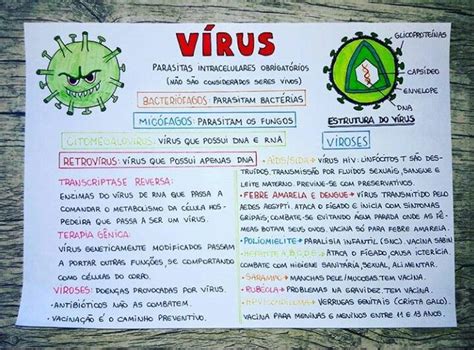 VÍRUS
PARASITAS INTRACELULARES OBRIGATÓRIOS
(NÃO SÃO CONSIDERADOS SERES VIVOS)
BACTERIÓFAGOS: PARASITAM BACTÉRIAS
MICÓFAGOS: PARASITAM OS FUNGOS
CITOMEGALOVÍRUS: VÍRUS QUE POSSUI DNA E RNA
RETROVÍRUS: VÍRUS QUE POSSUI APENAS DNA
GLICOPROTEÍNAS
CAPSÍDEO
ENVELOPE
DNA
ESTRUTURA DO VÍRUS
TRANSCRIPTASE REVERSA:
ENZIMAS DO VÍRUS DE RNA QUE PASSA A
COMANDAR O METABOLISMO DA CÉLULA HOS-
PEDEIRA QUE PASSA A SER UM VÍRUS.
TERAPIA GÊNICA:
VÍRUS GENETICAMENTE MODIFICADOS PASSAM
A PORTAR OUTRAS FUNÇÕES, SE COMPORTANDO
COMO CÉLULAS DO CORPO.
VIROSES: DOENÇAS PROVOCADAS POR VÍRUS.
•ANTIBIÓTICOS NÃO AS COMBATEM.
•VACINAÇÃO É O CAMINHO PREVENTIVO.
VIROSES
•AIDS/SIDA→ VÍRUS HIV: LINFÓCITOS T SÃO DES-
TRUÍDOS, TRANSMISSÃO POR FLUÍDOS SEXUAIS, SANGUE E
LEITE MATERNO. PREVINE-SE COM PRESERVATIVOS.
•FEBRE AMARELA E DENGUE→ VÍRUS TRANSMITIDO PELO
AEDES AEGYPTI ATACA O FÍGADO E INICIA COM SINTOMAS
GRIPAIS, COMBATE-SE EVITANDO ÁGUA PARADA ONDE AS FÊ-
MEAS BOTAM SEUS OVOS. VACINA SÓ PARA FEBRE AMARELA.
•POLIOMIELITE→ PARALISIA INFANTIL (SNC). VACINA SABIN
•HEPATITE A,B,C,D,E→ ATACA O FÍGADO, CAUSA ICTERÍCIA.
COMBATE COM HIGIENE SANITÁRIA, SEXUAL, ALIMENTAR.
•SARAMPO→ MANCHAS PELE/MUCOSAS. TEM VACINA.
•RUBÉOLA→ PROBLEMAS NA GRAVIDEZ. TEM VACINA.
→ VERRUGAS GENITAIS (CRISTA GALO).
VACINA PARA MENINAS E MENINOS ENTRE 11 E 13 ANOS.